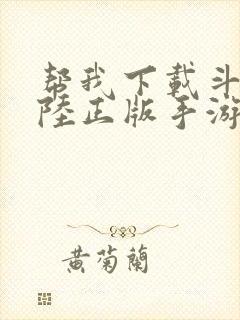 帮我下載斗
陸正版手游
黄菊蘭